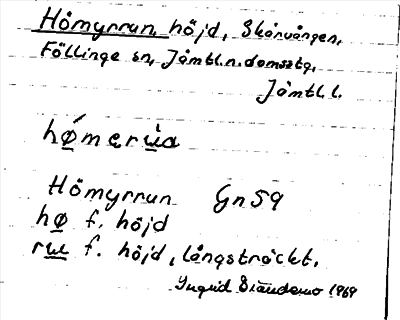 Hömyrrun höjd, Skärvången,
Föllinge sn, Jämtl.n.domsstg,
Jämtl. l.
hǿmerùa
Hömyrrun Gn 59
hø f. höjd
ru f. höjd, långsträckt.
Ingrid 1969